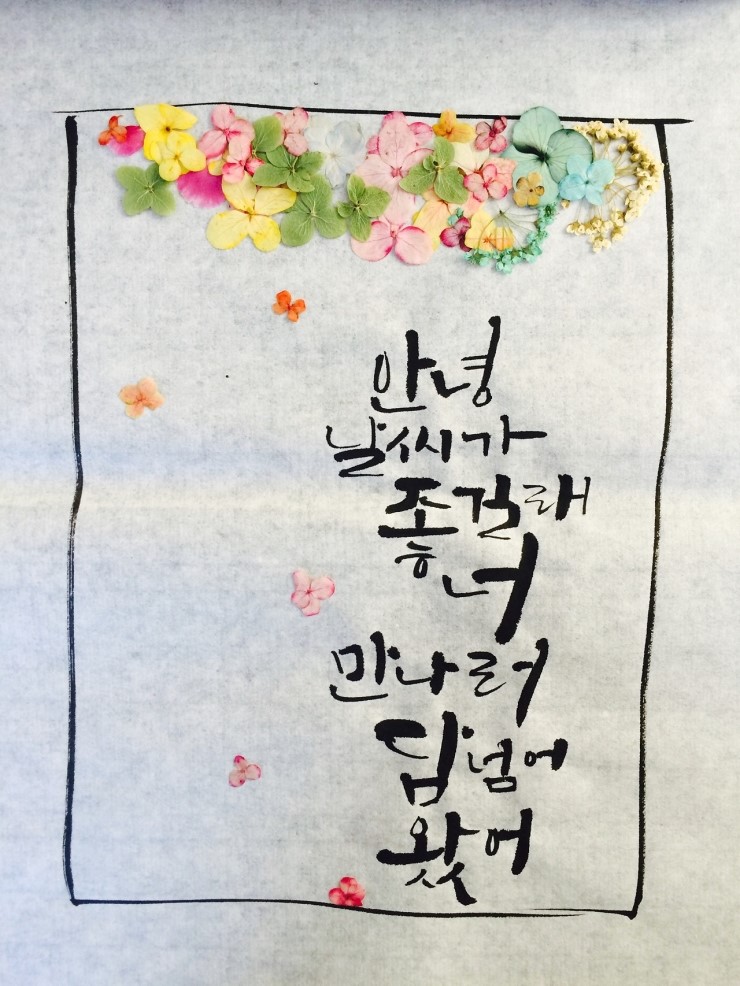 안녕
날씨가
좋길래
너
만나러
담넘어
왔어